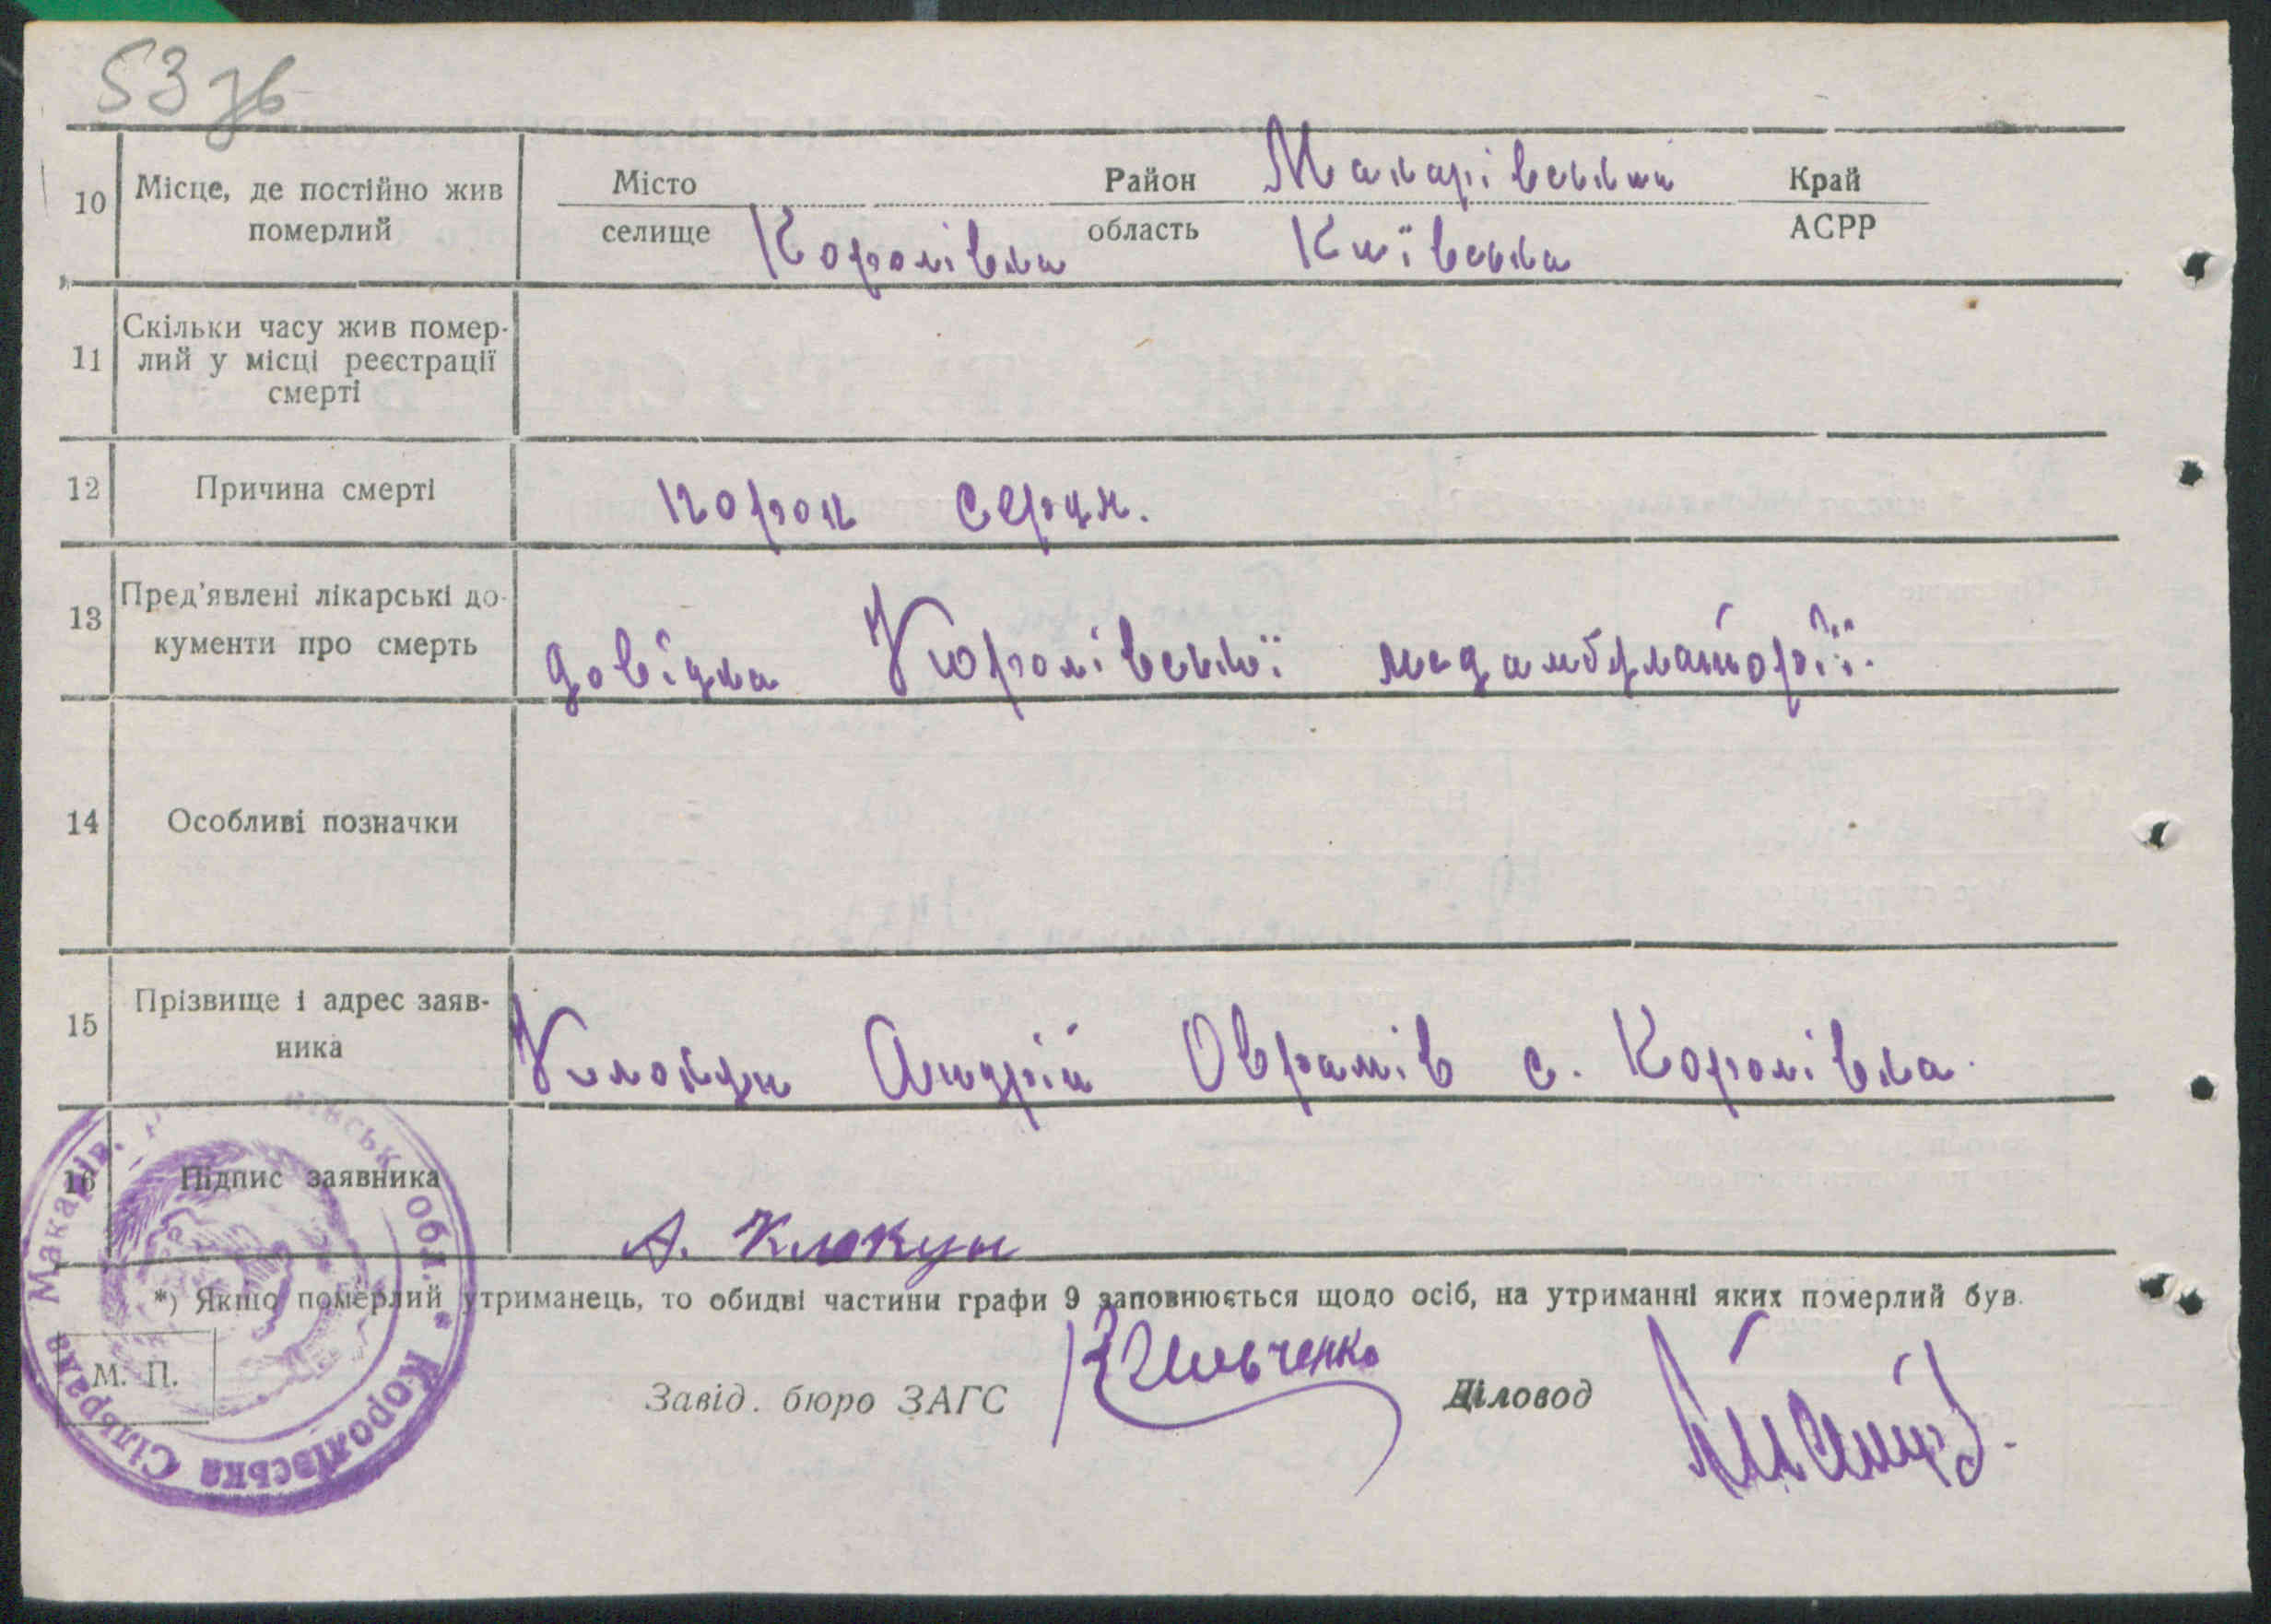 53 зв
10 Місце, де постійно жив померлий Місто селище Королівка Район Макарівський область Київська Край АСРР
11 Скільки часу жив помер-
лий у місці реєстрації
смерті
12 Причина смерті порок серця.
13 Пред'явлені лікарські до-
кументи про смерть довідка Королівської медамбулаторії.
14 Особливі позначки
15 Прізвище і адрес заяв-
ника Клокун Андрій Оврамів с. Королівка.
16 Підпис заявника А. Клокун
*) Якщо померлий утриманець, то обидві частини графи 9 заповнюється щодо осіб, на утриманні яких померлий був.
М. П.
Завід. бюро ЗАГС Діловод
Королівська Сільрада Макарів. обл.